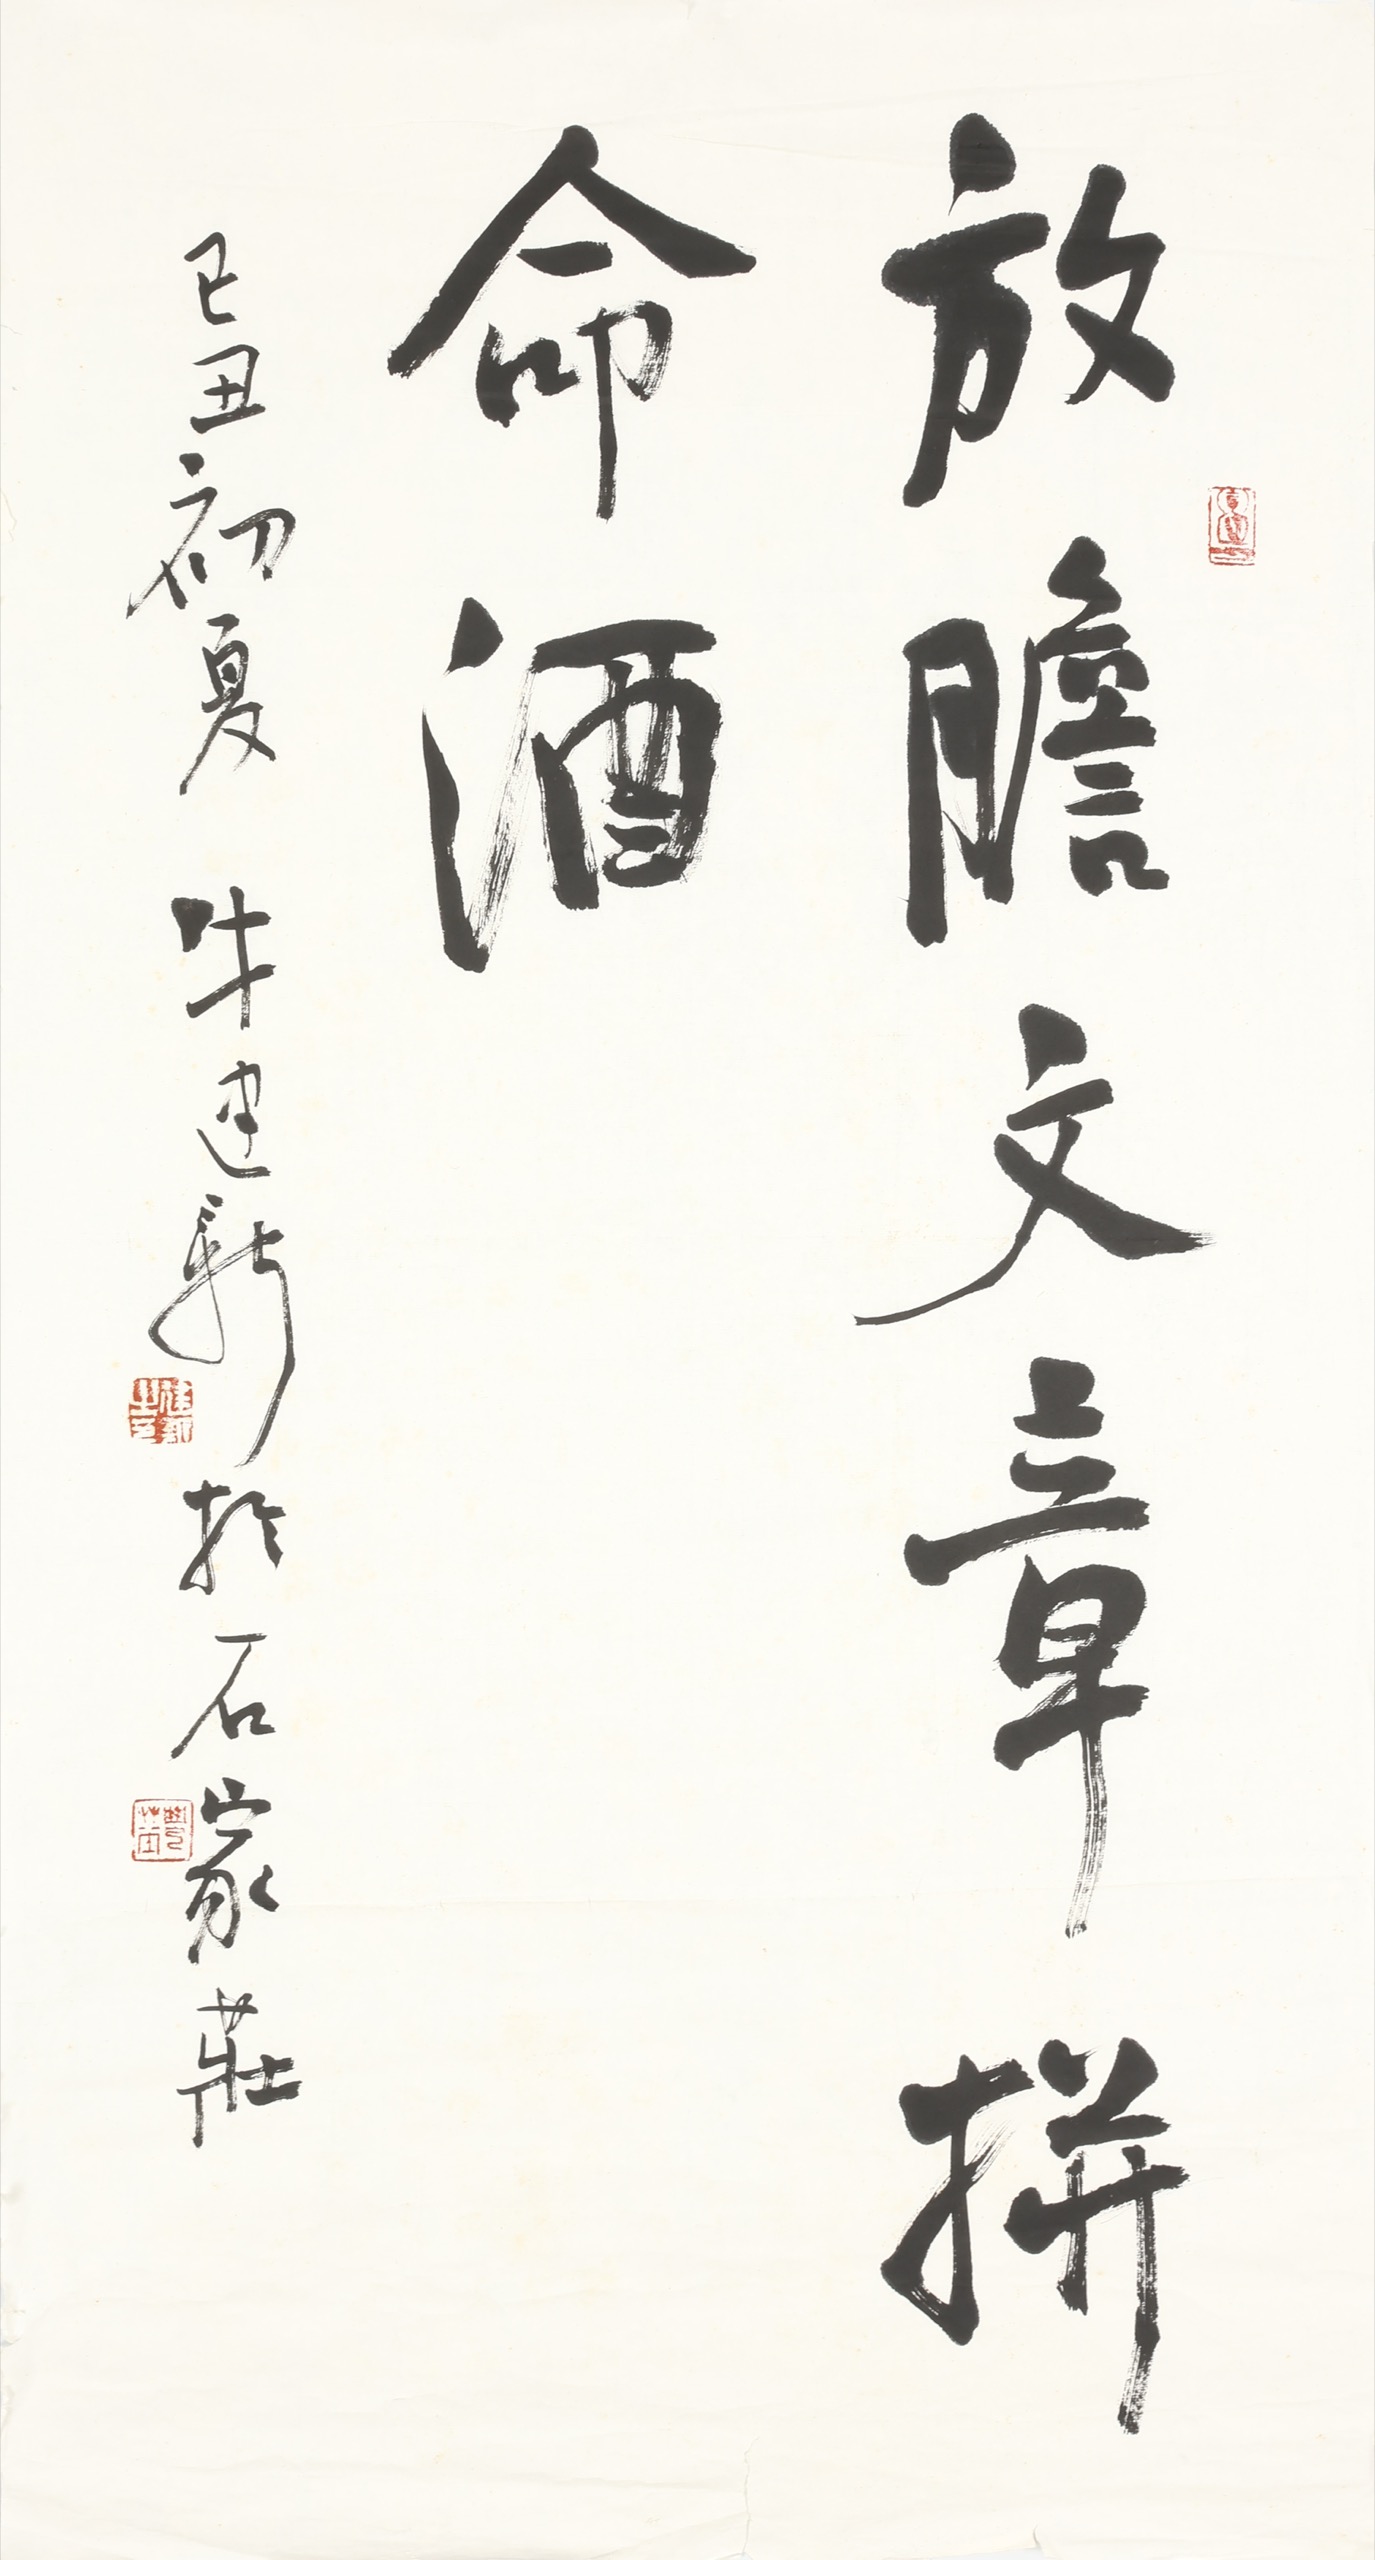 放膽文章拼
命酒
己丑初夏 牛建新於石家莊